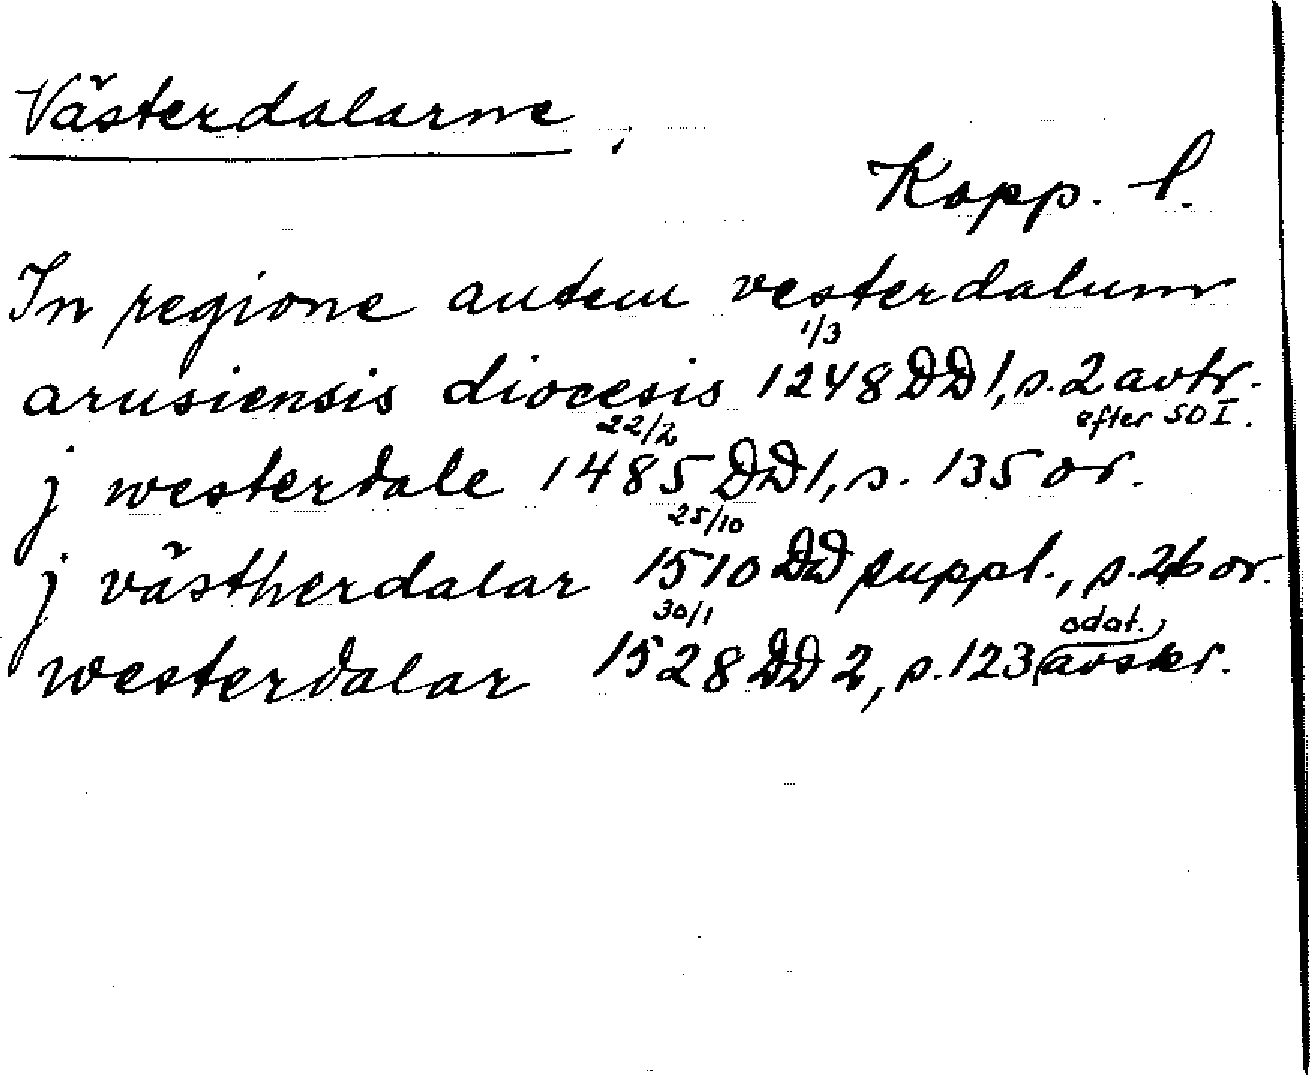 Västerdalarne,
Kopp. l.
In regione autem vesterdalum
arusiensis diocesis 1/3 1248 DD 1, s. 2 avtr.
efter SD I.
j westerdale 22/2 1485 DD 1, s. 135 or.
j västherdalar 25/10 1510 DD suppl., s. 26 or.
westerdalar 30/1 1528 DD 2, s. 123 (odat. avskr.